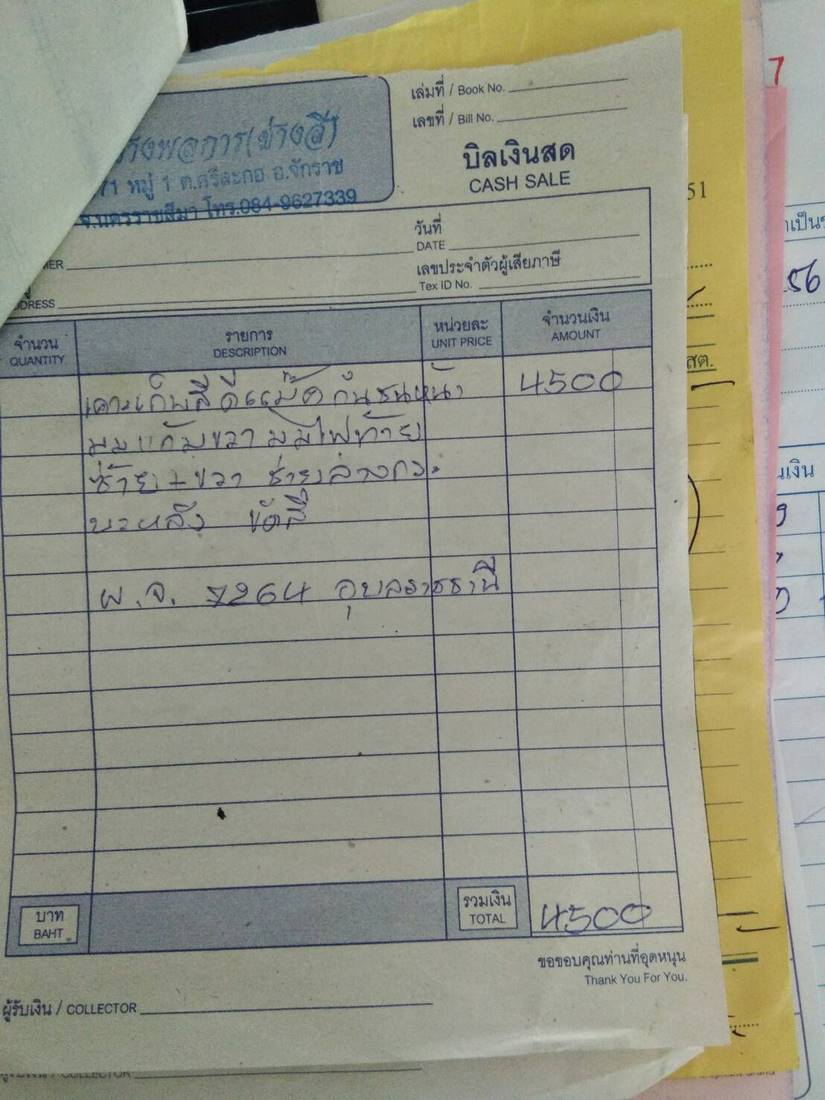 เล่มที่ / Book No.
เลขที่ / Bill No.
บิลเงินสด
CASH SALE
รงพลการ(ช่างอี๊)
71 หมู่ 1 ต.ศรีละกอ อ.จักราช
จ.นครราชสีมา โทร.084-9627339
วันที่
DATE
MER
เลขประจำตัวผู้เสียภาษี
Tex ID No.
DRESS
จำนวน
QUANTITY
รายการ
DESCRIPTION
หน่วยละ
UNIT PRICE
จำนวนเงิน
AMOUNT
กันชนหน้า 4500
มุมแก้มขวา มุมไฟท้าย
ซ้าย + ขวา
ขัดสี
ผ.จ. 7264 อุบลราชธานี
บาท
BAHT
รวมเงิน
TOTAL
4500
ขอขอบคุณท่านที่อุดหนุน
Thank You For You.
ผู้รับเงิน / COLLECTOR
COLLECTOR
7
51
56
สต.